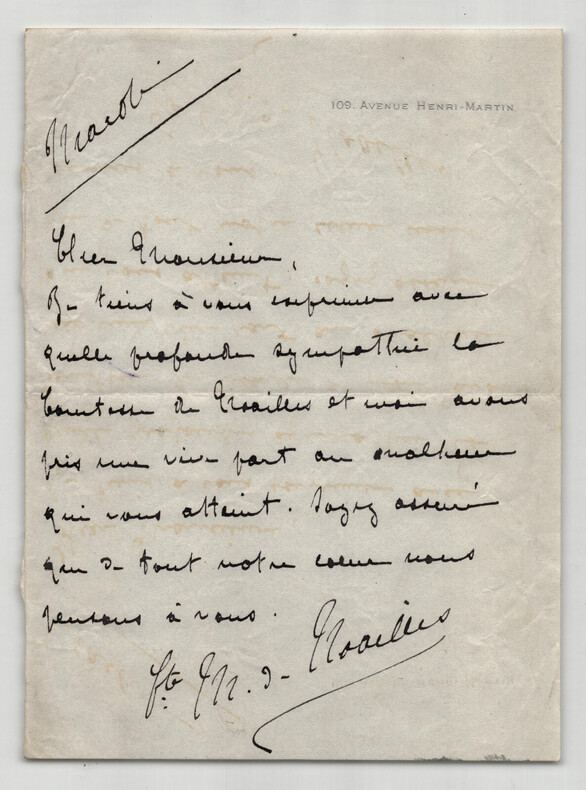 109. AVENUE HENRI-MARTIN
Cher Monsieur,
Je tiens à vous exprimer avec
quelle profonde sympathie la
Comtesse de Noailles et moi avons
pris une vive part au malheur
qui vous atteint. Soyez assuré
que de tout notre coeur nous
pensons à vous.
Cte M. de Noailles